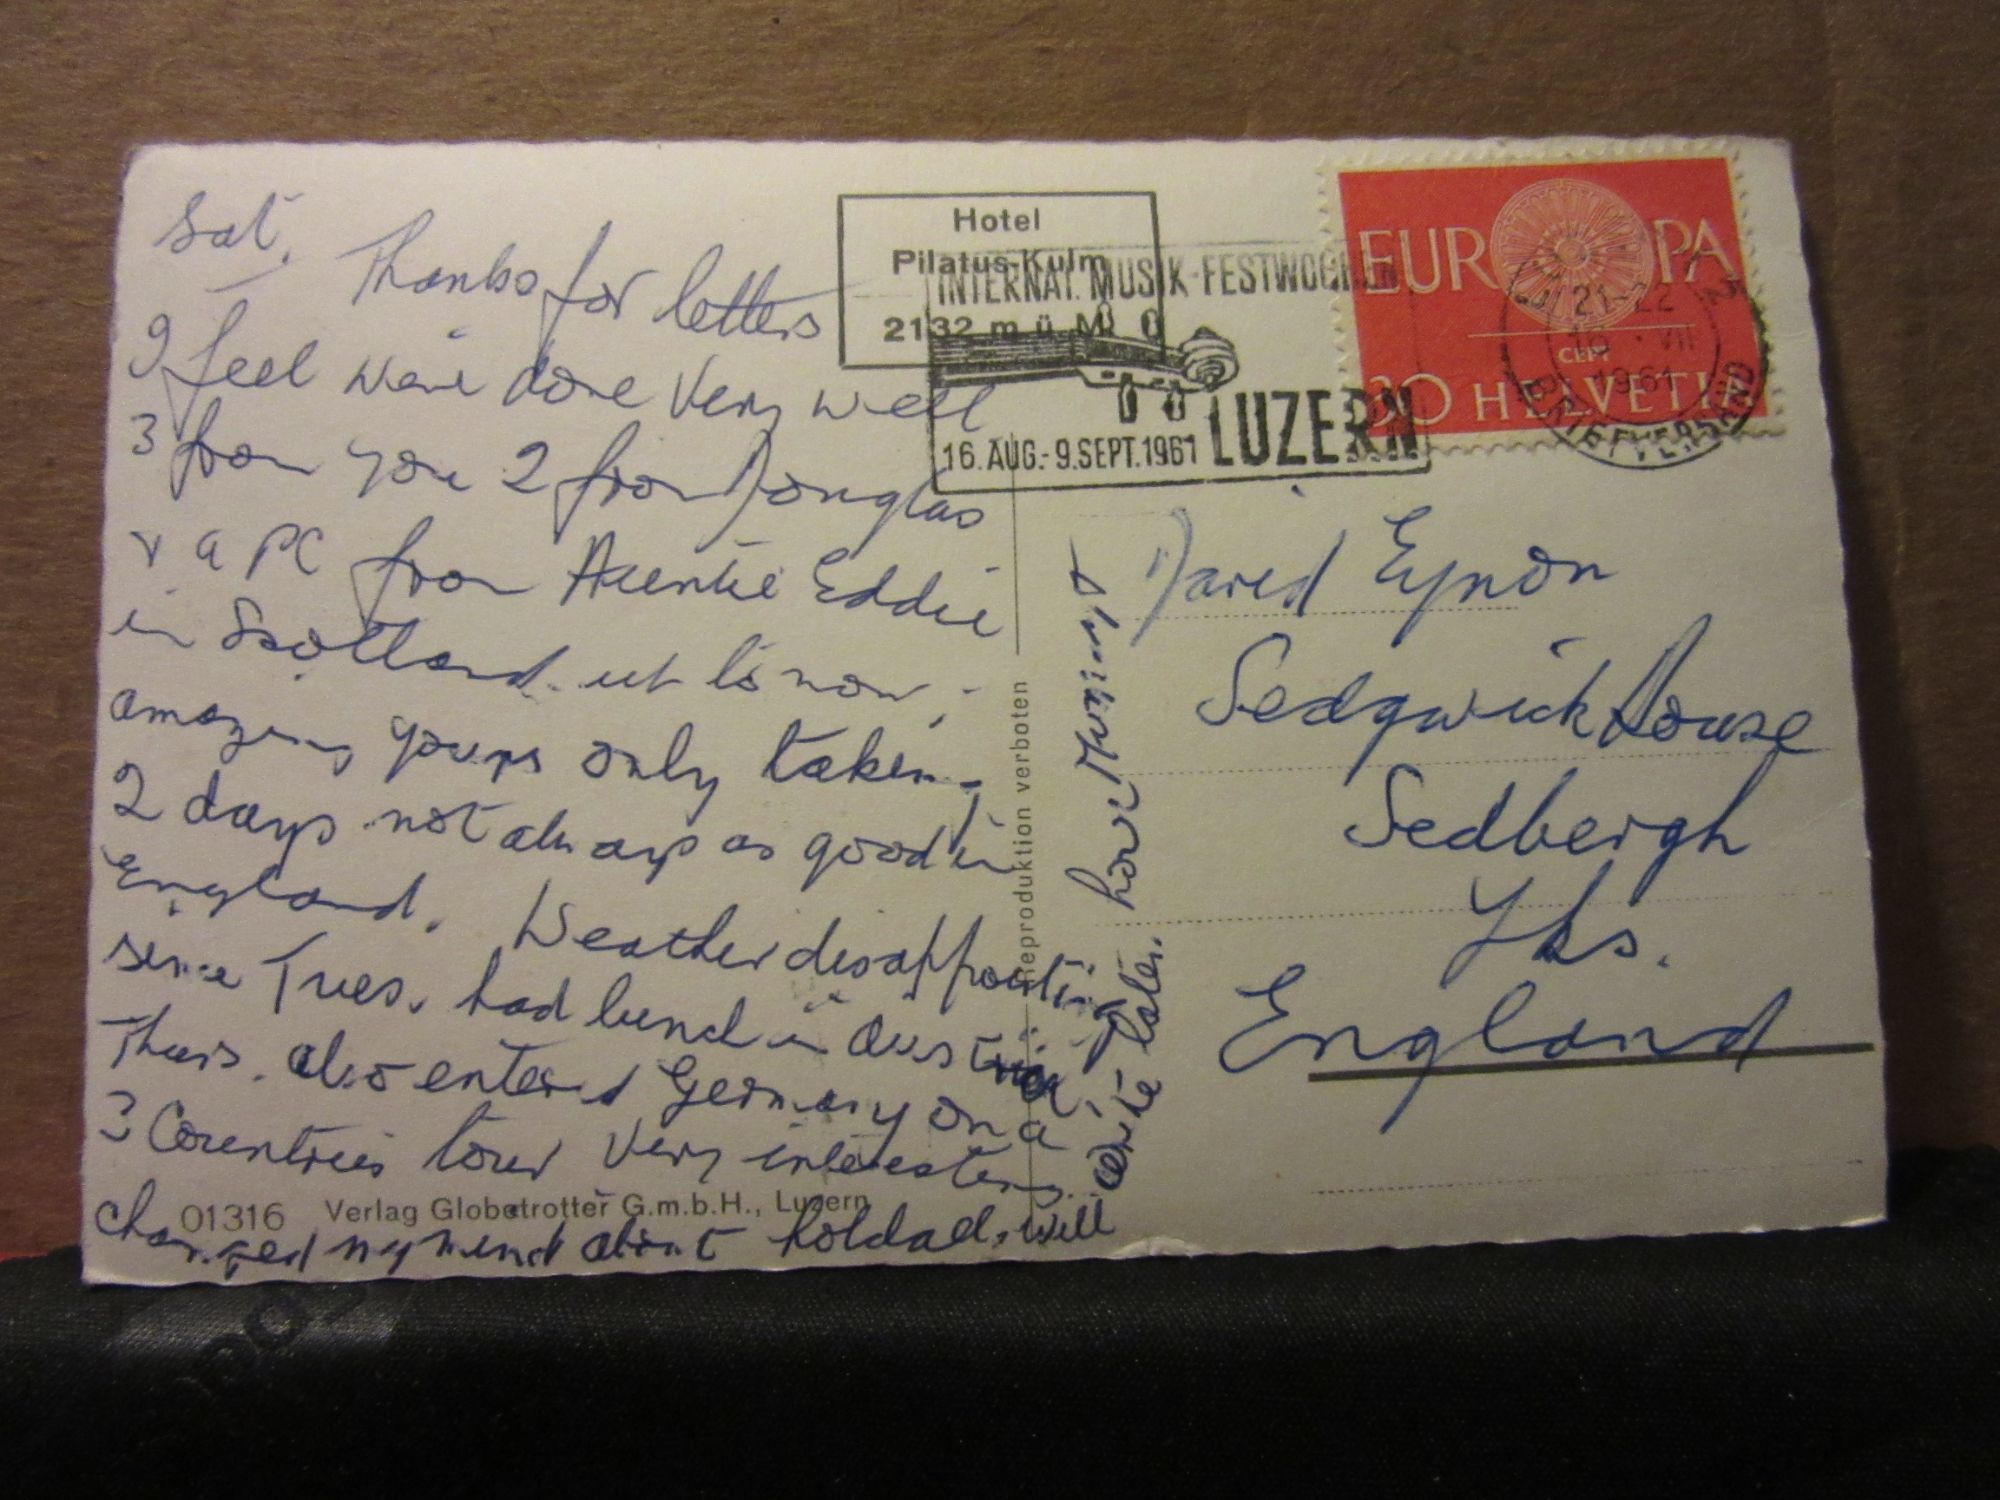 Sat.
Thanks for letters
I feel we've done very well
3 from you 2 from Douglas
& a PC from Auntie Eddie
in Scotland.
amazing yours only taken
2 days not always as good in
England. Weather disappointing
since Tues. had lunch in Austria
Thurs. also entered Germany on a
3 Countries tour very interesting.
changed my mind about will
write later.
Hotel
Pilatus-Kulm
2132 m ü. M.
INTERNAT. MUSIK-FESTWOCHEN
LUZERN
16. AUG.-9. SEPT. 1961
EUROPA
CEPT
30 HELVETIA
21-22
VII
1961
BRIEFVERSAND
David Eynon
Sedgwick House
Sedbergh
Yks.
England
Reproduktion verboten
01316 Verlag Globetrotter G.m.b.H., Luzern